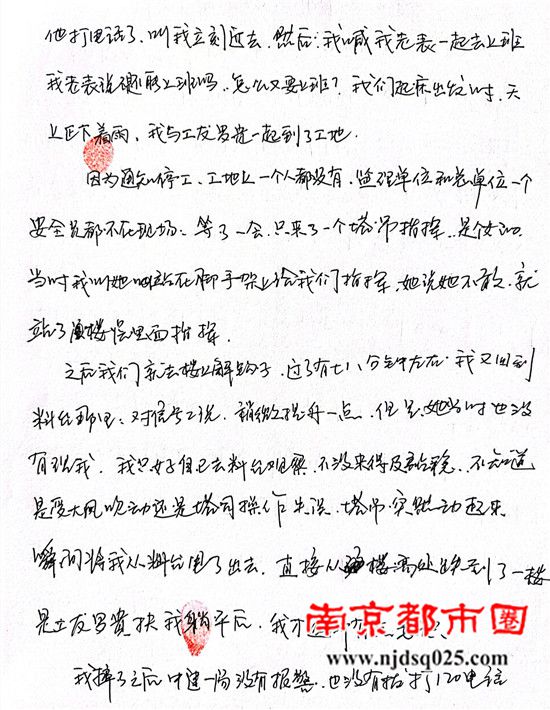 他打电话了,叫我立刻过去,然后:我喊我老表一起去上班
我老表说 上班吗,怎么又要上班?我们起床出发时,天
上正下着雨,我与工友罗贵一起到了工地.
因为通知停工、工地上一个人都没有,监理单位和总单位一个
安全员都不在现场:等了一会,只来了一个塔吊指挥,是个女的,
当时我叫她 站在脚手架上给我们指挥,她说她不敢,就
站了 楼层里面指挥.
之后我们就去楼上解钩子,过了有七八分钟左右,我又回到
料台那里:对信号工说,稍微提升一点,但是,她当时也没
有理我,我只好自己去料台观察,不 没来得及 ,不知道
是受大风吹动还是塔司操作失误,塔吊突然动起来
瞬间将我从料台甩了出去,直接从 楼高处跌到了一楼
是工友罗贵扶我躺平后,我才
南京都市圈
www.njdsq025.com
我摔了之后中建一局没有报警,也没有拨打120电话